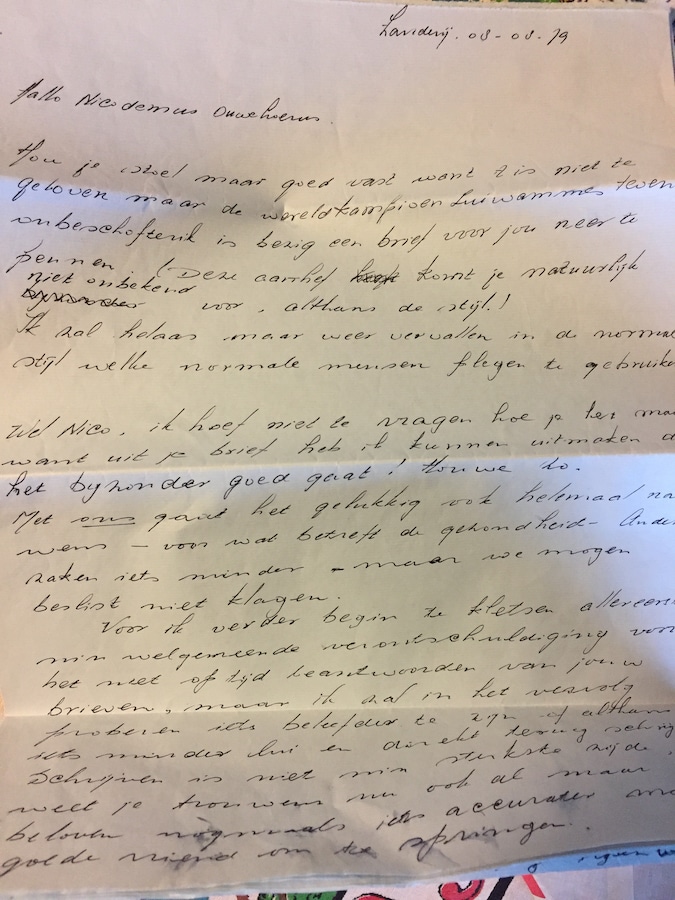 08-08-79
Hallo Nicodemus
Hou je stoel maar goed vast want 't is niet te
geloven maar de wereldkampioen Luiwammes tevens
onbeschofterik is bezig een brief voor jou neer te
pennen! (Deze aanhef komt je natuurlijk
niet onbekend
voor, althans de stijl.!
Ik zal helaas maar weer vervallen in de norma
stijl welke normale mensen plegen te gebruike
Wel Nico, ik hoef niet te vragen hoe je het maa
want uit je brief heb ik kunnen uitmaken d
het byzonder goed gaat! Hou we zo.
Met ons gaat het gelukkig ook helemaal na
wens - voor wat betreft de gezondheid - Ander
zaken iets minder - maar we mogen
beslist niet klagen.
Voor ik verder begin te kletsen allereers
mijn welgemeende verontschuldiging voor
het niet op tijd beantwoorden van jouw
brieven, maar ik zal in het vervolg
proberen iets beleefder te zijn of althans
iets minder lui en direkt terug schrij
Schrijven is niet mijn sterkste zijde,
weet je trouwens nu ook al maar
beloven nogmaals iets accurater me
goede vriend om te springen.